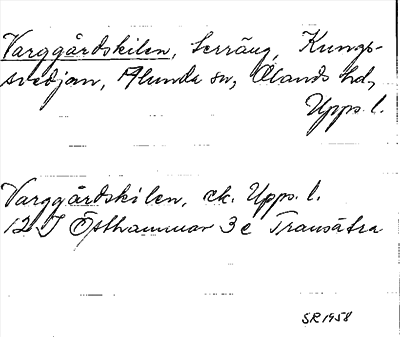 Varggårdskilen, terräng, Kungs-
svedjan, Alunda sn, Olands hd,
Upps. l.
Varggårdskilen, ek. Upps. l.
12 I Östhammar 3 e Transätra
SR 1958